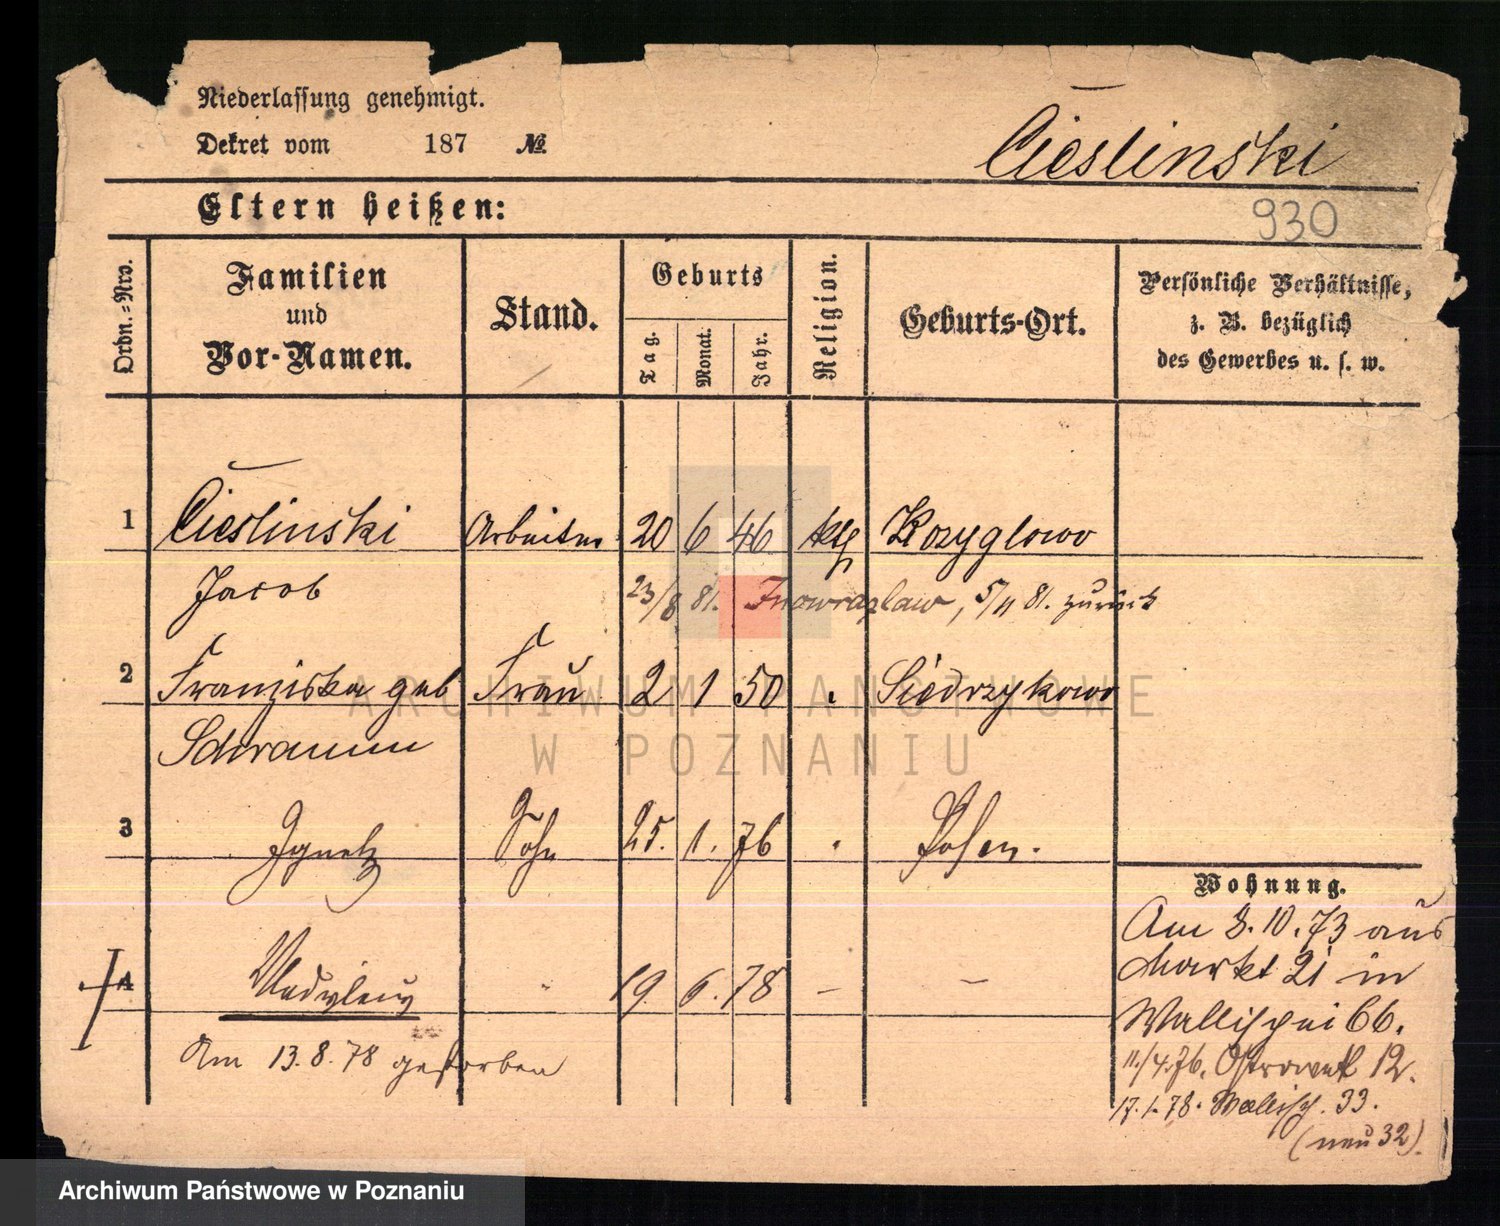 Niederlassung genehmigt.
Dekret vom 187 №
Cieslinski
Eltern heißen:
930
Ordn.-Nro.
Familien
und
Vor-Namen.
Stand.
Geburts
Tag.
Monat.
Jahr.
Religion.
Geburts-Ort.
Persönliche Verhältnisse,
z. B. bezüglich
des Gewerbes u. s. w.
1 Cieslinski Arbeiter 20 6 46 ktg Kozyglowo
Jacob 23/8 81. Inowrazlaw, 5/11 81. zurück
2 Franziska geb Frau 2 1 50 Siedrzykowo
ARCHIWUM PAŃSTWOWE
Schramm
W POZNANIU
3 Ignatz Sohn 25. 1. 76 Posen.
Wohnung.
Am 8.10.73 aus
Markt 21 in
4 " 19. 6. 78 – –
Wallischei 66.
Am 13.8.78 gestorben
11./4.76. 12.
17.1.78. Wallisch. 33.
(neu 32).
Archiwum Państwowe w Poznaniu